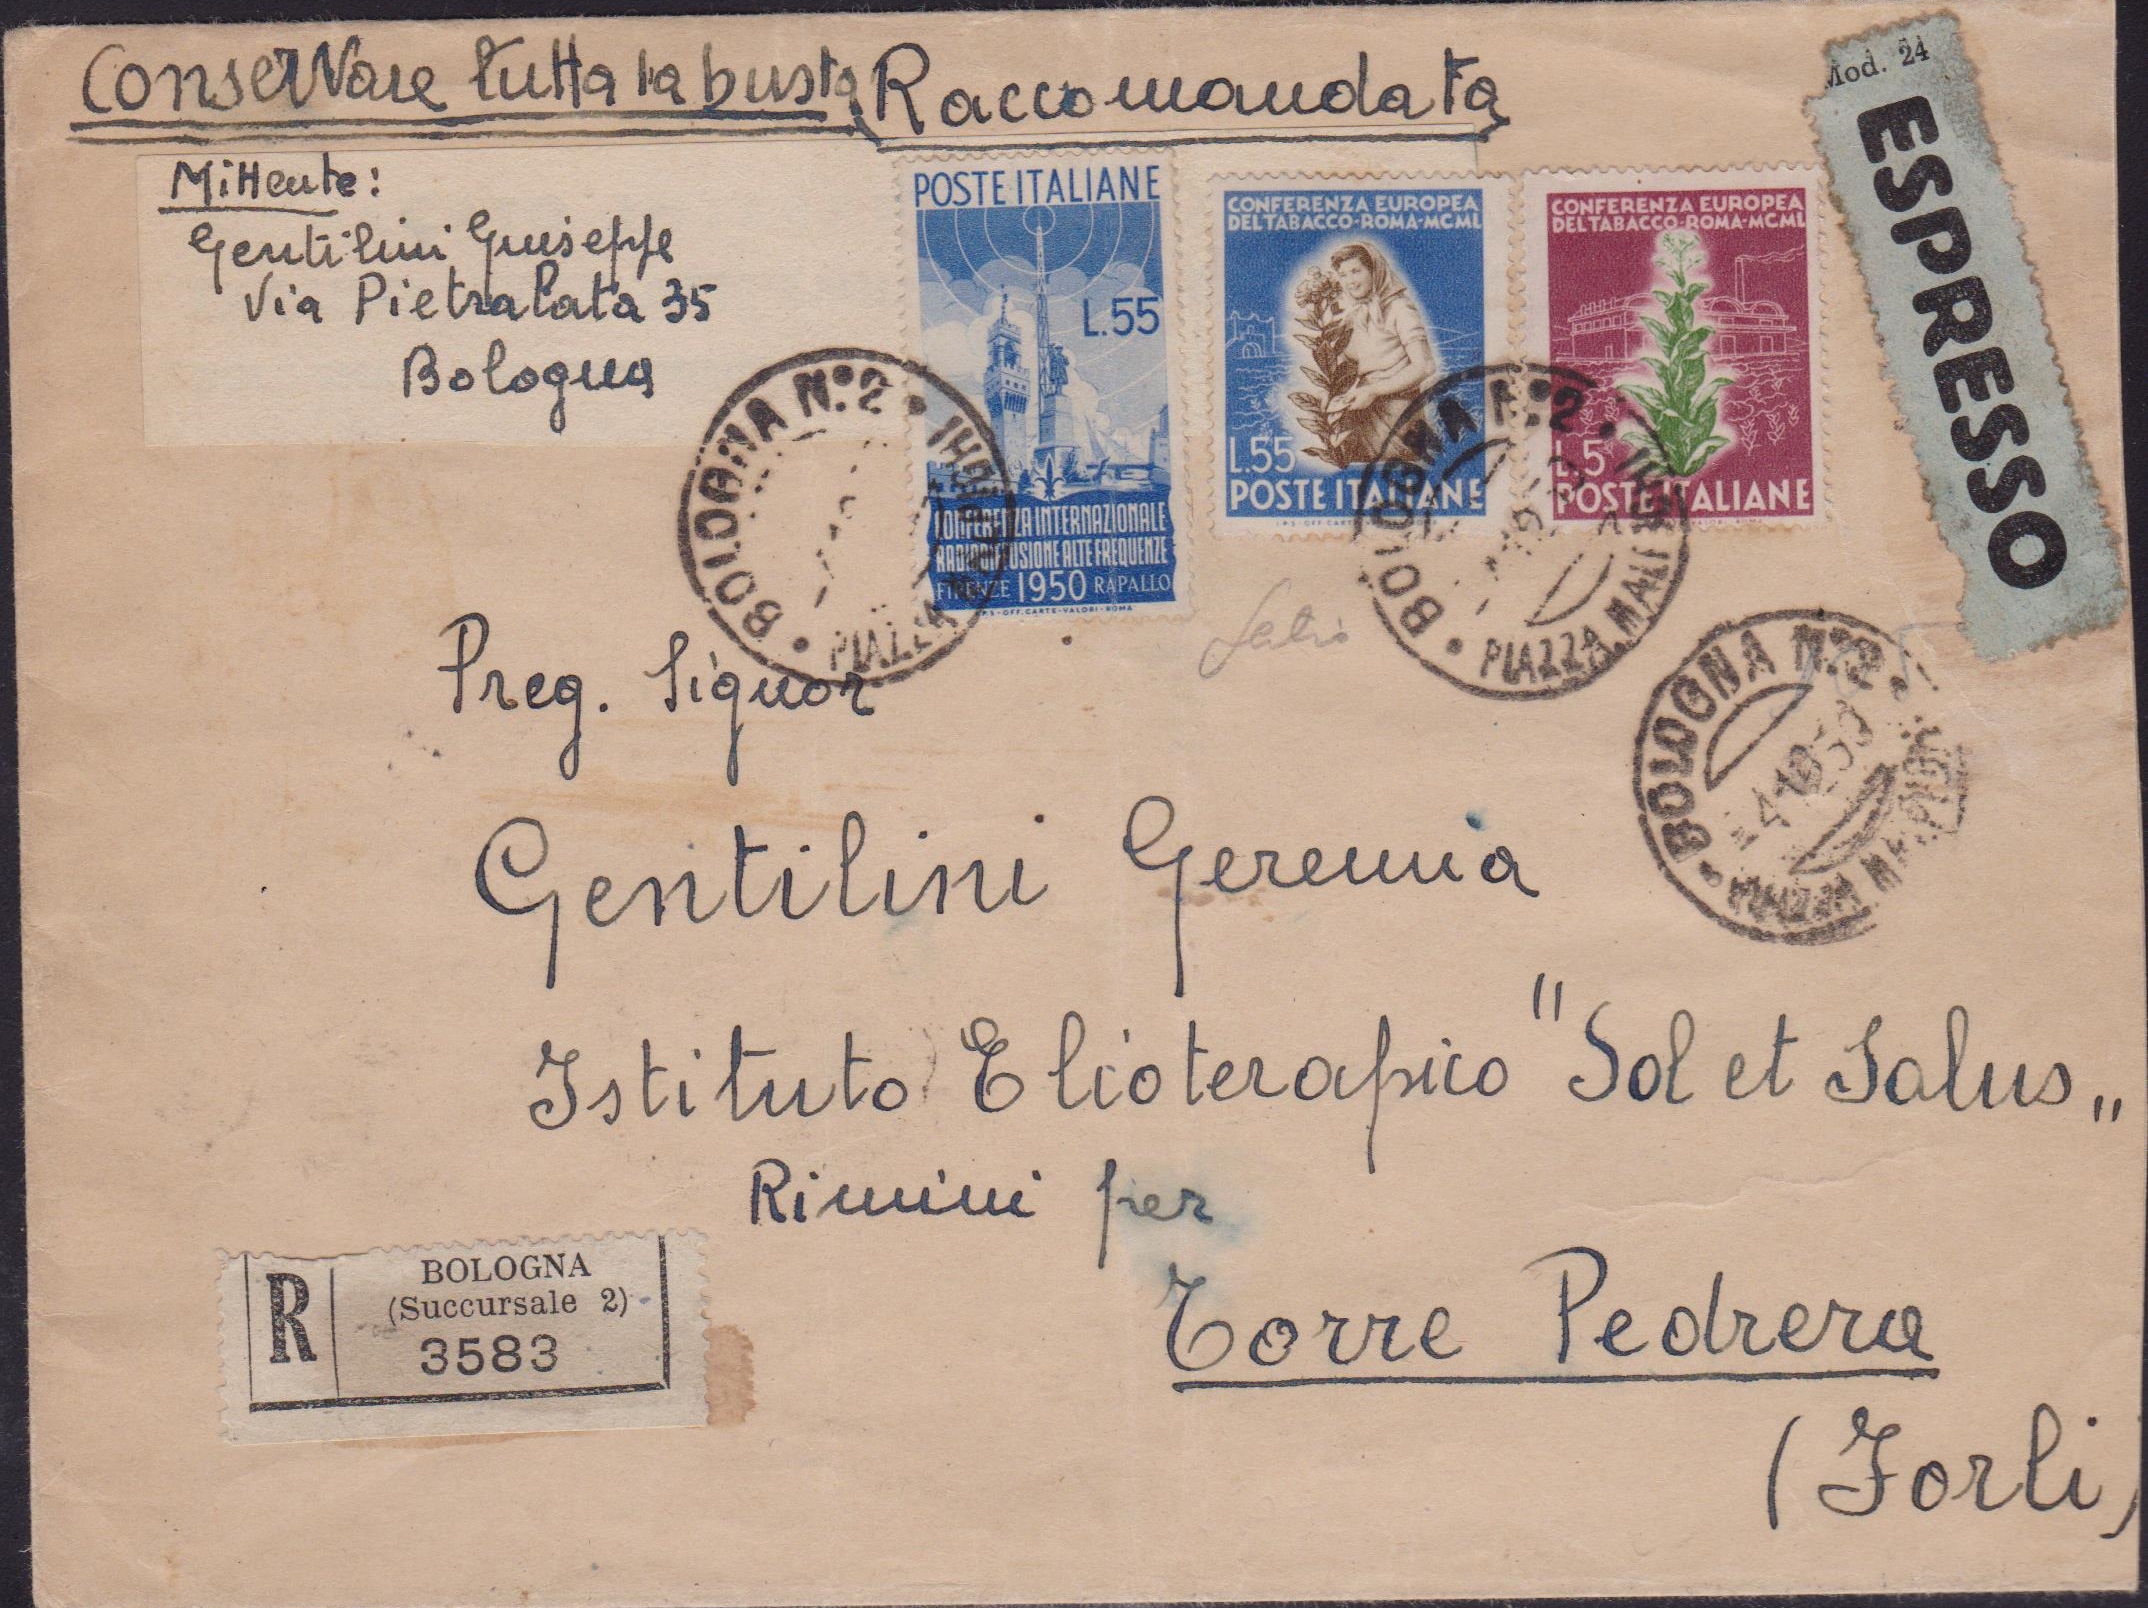 Conservare tutta la busta Raccomandata
Mod. 24
ESPRESSO
Mittente:
Gentilini Giuseppe
Via Pietralata 35
Bologna
POSTE ITALIANE
L.55
CONFERENZA INTERNAZIONALE
RADIODIFFUSIONE ALTE FREQUENZE
FIRENZE 1950 RAPALLO
I.P.S-OFF. CARTE-VALORI-ROMA
CONFERENZA EUROPEA
DEL TABACCO-ROMA-MCML
L.55
POSTE ITALIANE
CONFERENZA EUROPEA
DEL TABACCO-ROMA-MCML
L.5
POSTE ITALIANE
BOLOGNA N.2
PIAZZA MALPIGHI
BOLOGNA N.2
PIAZZA MALPIGHI
BOLOGNA N.2
-4.10.50
PIAZZA MALPIGHI
Preg. Signor
Gentilini Geremia
Istituto Elioterapico "Sol et Salus„
Rimini per
Torre Pedrera
(Forlì)
R
BOLOGNA
(Succursale 2)
3583